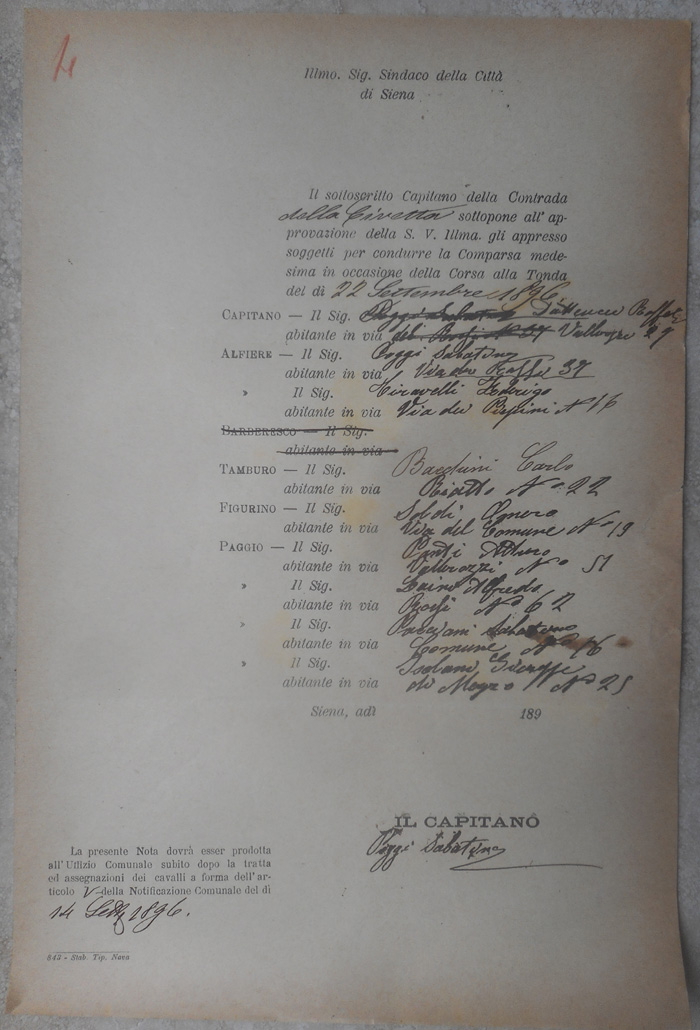 4
Illmo. Sig. Sindaco della Città
di Siena
Il sottoscritto Capitano della Contrada
della Civetta sottopone all' ap-
provazione della S. V. Illma. gli appresso
soggetti per condurre la Comparsa mede-
sima in occasione della Corsa alla Tonda
del dì 22 Settembre 1896
CAPITANO — Il Sig. Poggi Sabatino
abitante in via dei Rossi N° 37 27
ALFIERE — Il Sig. Poggi Sabatino
abitante in via Via dei 37
» Il Sig. Federigo
abitante in via Via dei N° 16
BARBERESCO — Il Sig.
abitante in via
TAMBURO — Il Sig. Carlo
abitante in via N° 22
FIGURINO — Il Sig. Soldi
abitante in via Via del Comune N° 19
PAGGIO — Il Sig.
abitante in via Vallerozzi N° 51
» Il Sig. Alfredo
abitante in via Rossi N° 62
» Il Sig. Sabatino
abitante in via Comune N° 16
» Il Sig. Giuseppe
abitante in via di Mezzo N° 25
Siena, adì 189
IL CAPITANO
Poggi Sabatino
La presente Nota dovrà esser prodotta
all' Uffizio Comunale subito dopo la tratta
ed assegnazioni dei cavalli a forma dell' ar-
ticolo V della Notificazione Comunale del dì
14 Sett 1896.
843 - Stab. Tip. Nava